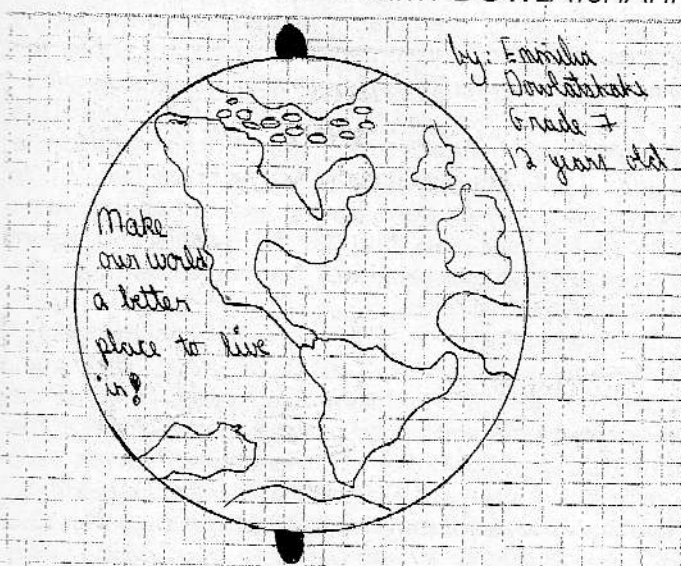 by: Emmilia
Dowlatshahi
Grade 7
12 years old
Make
our world
a better
place to live
in!